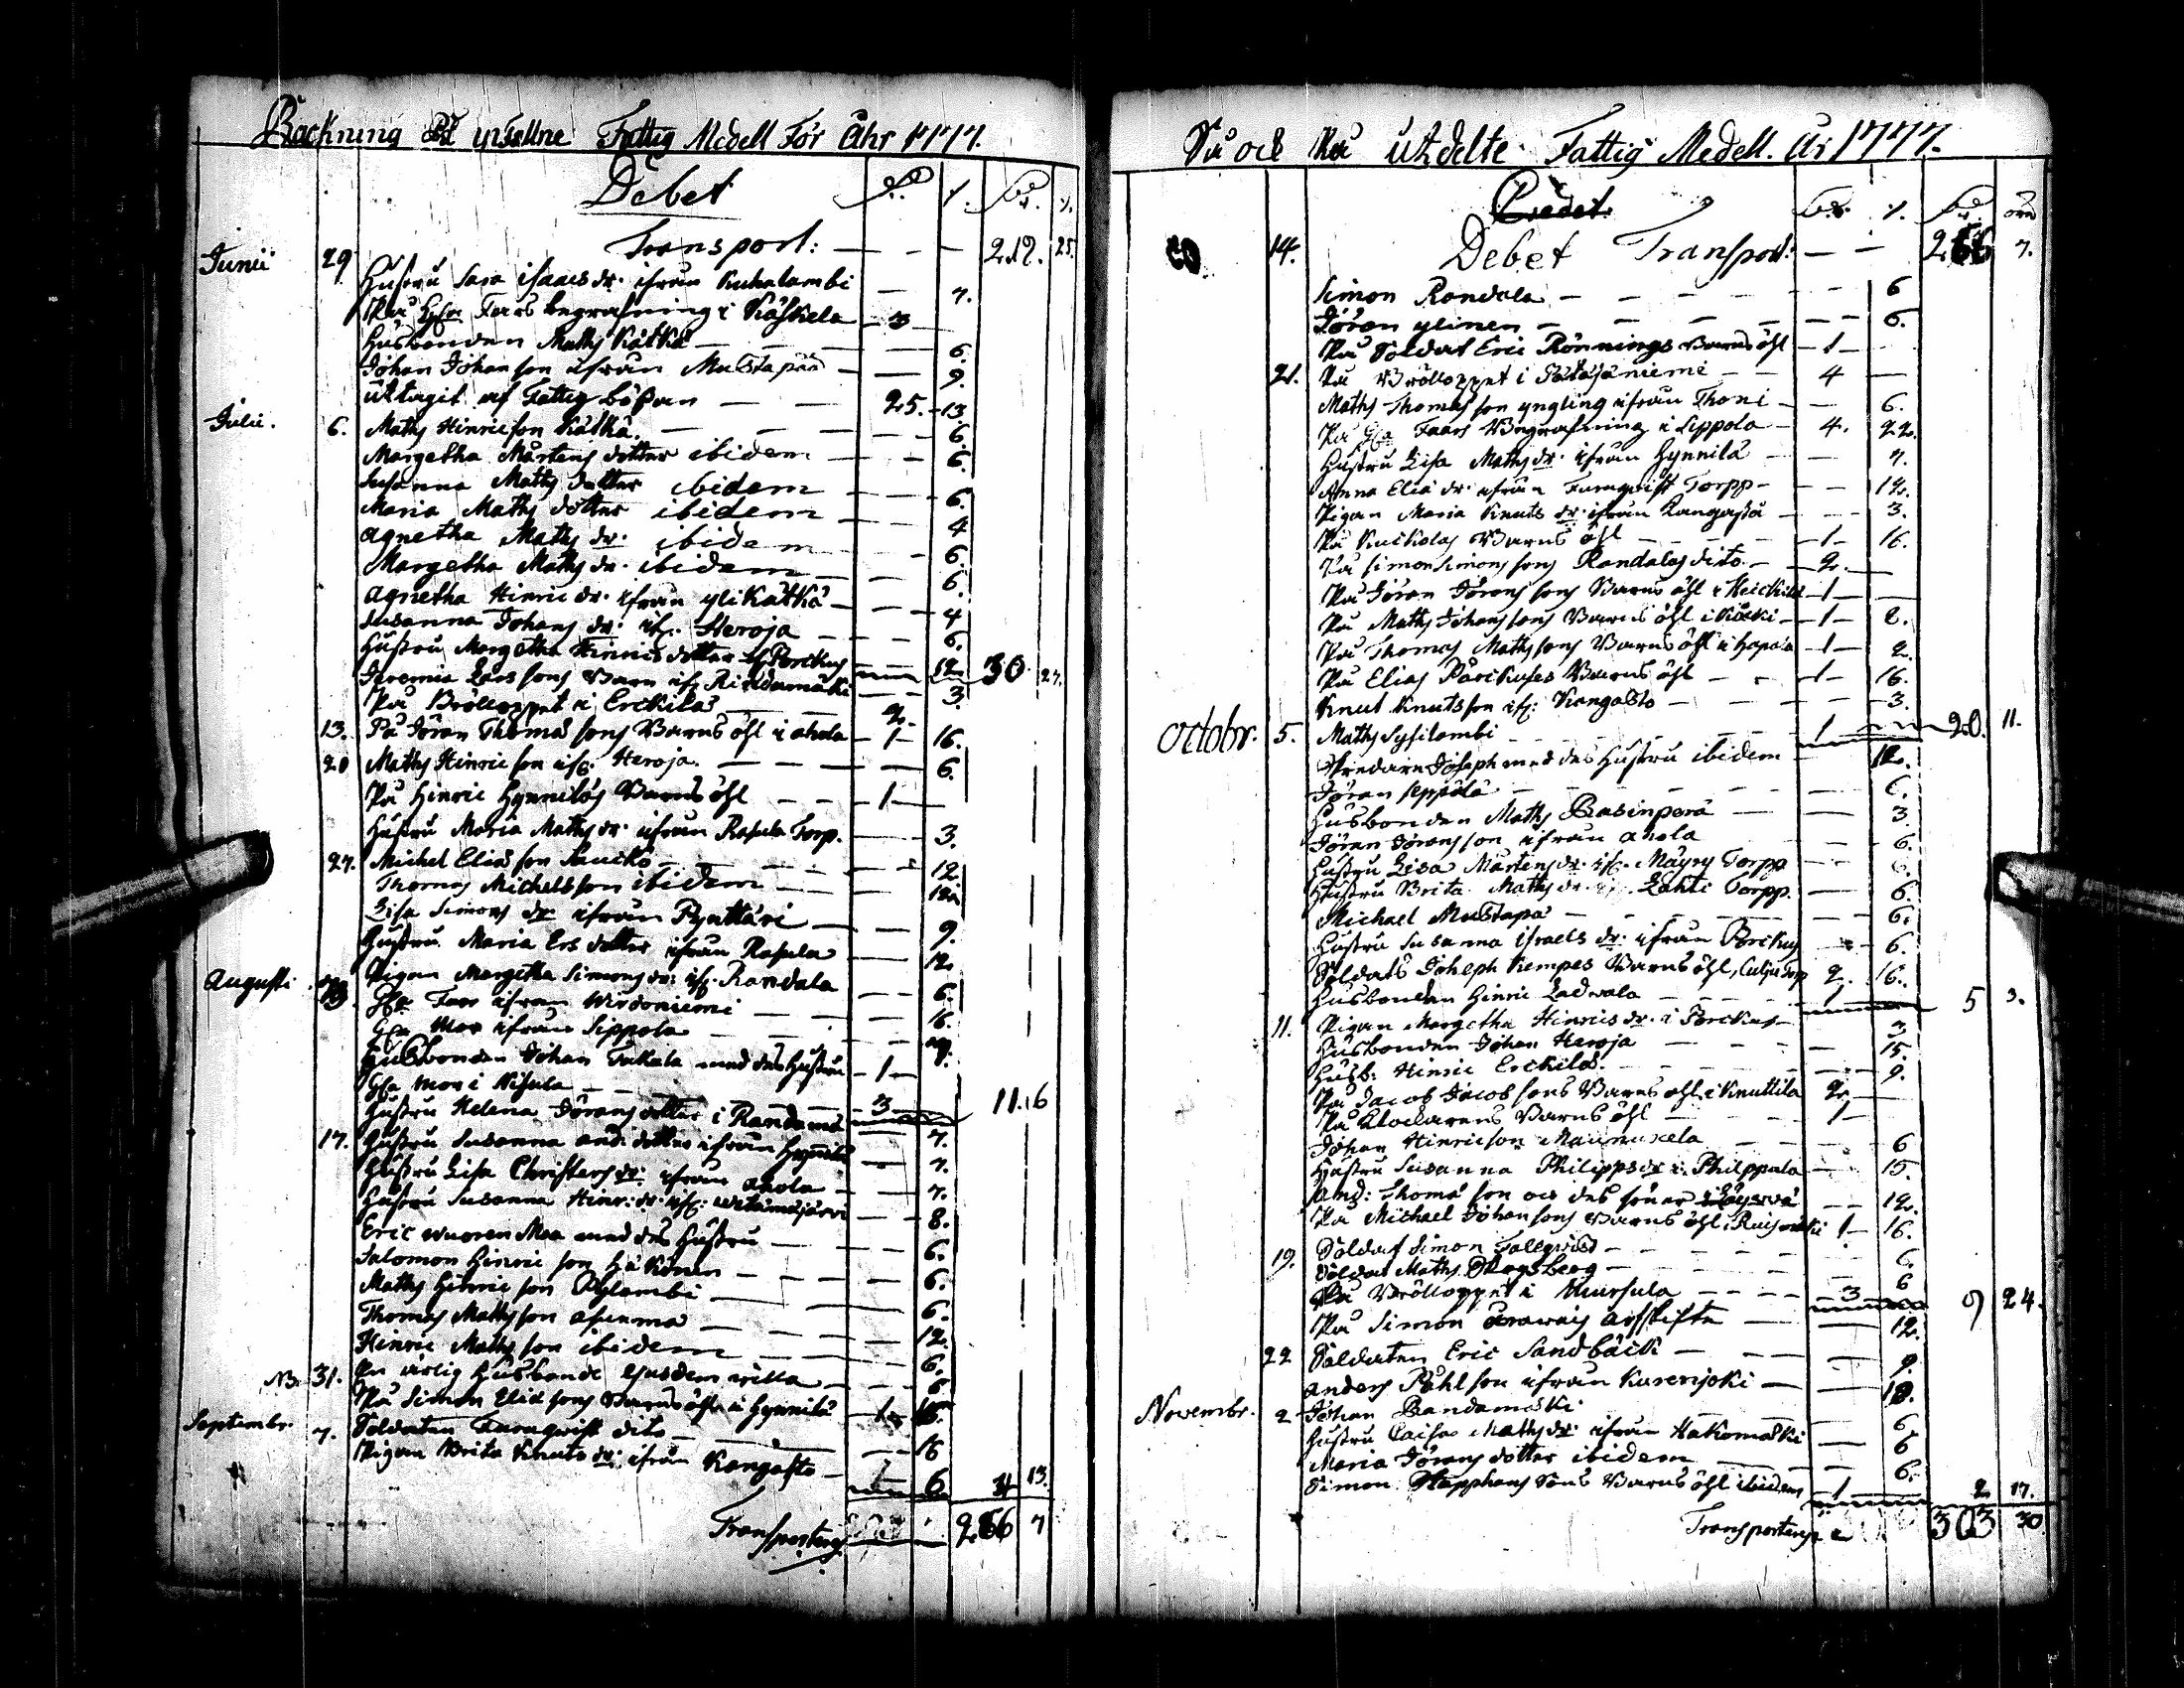 Räckning på influtne Fattig Medell För Åhr 1777.
Debet
Transport: — — — 212. 25.
Junii 29 Hustru Sara isaacs dr. ifrån Kuhalambi — 7.
På Hr Fars begrafning i Käskela — 3
Husbonden Maths Kätkä — — — 6.
Johan Johanson ifrån Mustapää — — 9.
Uttagit af Fattig bössan — — 25. 13
Julii. 6. Maths Hinricson Kätkä. — — — 6.
Margetha Mårtens dotter ibidem — — 6.
Susanna Maths dotter ibidem — — 6.
Maria Maths dotter ibidem — — 4
Agnetha Maths dr. ibidem — 6.
Margetha Maths dr. ibidem — — 6.
Agnetha Hinric dr. ifrån ylikätkä — — 4
Susanna Johans dr. if. Heroja — — 6.
Hustru Margetha Hinrics dotter if. Porckus — 12 30 27.
Jeremia Larssons Barn if. Rindamäki — 3.
På Bröllopet i Erckilä — — 2.
13. På Jöran Thomassons Barns öhl i ahola — 1 — 16.
20 Maths Hinricson if. Heroja. — — — 6.
På Hinric Hynniläs Barns öhl — — 1 —
Hustru Maria Maths dr. ifrån Rasula Torp. — 3.
27. Michel Eliasson Saucko — — — 12
Thomas Michelsson ibidem — — 12
Lisa Simons dr. ifrån Pynttäri — — 9.
Hustru Maria Ers dotter ifrån Rasula — 12
Augusti 3. Pigan Margetha Simons dr. if. Randala — 6.
Fars ifrån Wirdoniemi — — 16.
Mor ifrån Sippola — — —
Husbonden Johan Takala med des Hustru — 1 —
Mor i Nisula — — — 3 11. 16
Hustru Helena Jörans dotter i Randamä — 7.
17. Hustru Susanna and: dotter ifrån Hynnilä — 7.
Hustru Lisa Christers dr. ifrån ahola — 7.
Hustru Susanna Hinr: dr. if: wetämäjärvi — 8.
Eric wuorenMaa med des Hustru — — 6.
Salomon Hinricson Häkönen — — 6.
Maths Hinricson Pylambi — — 6.
Thomas Mathsson asunma — — 12.
Hinric Mathsson ibidem — — 6.
NB. 31. En ärlig Husbonde ejusdem villa — — 6
På Simon Eliæsons Barns öhl i Hynnilä — 1 16.
Septembr. 7. Soldaten Furuqwist dito — — — 16
Pigan Brita Knuts dr: ifrån Kangasto — 6 13.
Transporteras 266 7
Så ock På utdelte Fattig Medell. År 1777.
Credet.
14. Debet Transport: — — 266 7.
Simon Randala — — — — 6
Jöran ylinen — — — — 6.
På Soldat Eric Rönnings Barns öhl — 1 —
21. På Bröllopet i Sätäjäniemi — — 4 —
Maths Thomasson yngling ifrån Thoni — — 6.
På Fars Begrafning i Sippola — 4. 22.
Hustru Lisa Maths dr. ifrån Hynnilä — — 7.
Anna Eliä dr. ifrån Furuqvist Torpp — — 12.
Pigan Maria Knuts dr. ifrån Kangasta — — 3.
På Kuckolas Barns öhl — — — 1 — 16.
På Simon Simonssons Randalas dito — 2 —
På Jöran Jöranssons Barns öhl i Heickilä — 1 —
På Maths Johanssons Barns öhl i Käcki — 1 — 2.
På Thomas Mathssons Barns öhl i Hapoia — 1 — 2
På Elias Pärckuses Barns öhl — — 1 — 16.
Knut Knutsson if: Kangasto — — — 3.
Octobr. 5. Maths Sysilambi — — — 1 — 20. 11.
Joseph med des Hustru ibidem — 12.
Jöran Seppälä — — — — 6.
Husbonden Maths Basinperä — — 3
Jöran Jöransson ifrån ahola — 6.
Hustru Lisa Mårtens dr. if. Mäyry Torpp — 6.
Hustru Brita Maths dr. if. Lahti Torpp. — 6.
Michael Mustapä — — — 6.
Hustru Susanna Israels dr: ifrån Porckus — 6.
Soldats Joseph Kempes Barns öhl, Culju Torp 2. 16.
Husbonden Hinric Ladwala — — — 1 — 5 3.
11. Pigan Margetha Hinrics dr. i Porckus — 3
Husbonden Johan Heroja — — — 15.
Husb: Hinric Erckilä — — — 9.
På Jacob Jacobsons Barns öhl i Knuttila 2 —
På Klockarens Barns öhl — — 1 —
Johan Hinricson Maunuxela — — 6
Hustru Susanna Philipps dr i Philppula — 15.
And: Thomasson och des söner i — 12.
På Michael Johansons Barns öhl i 1 — 16.
19. Soldat Simon Fallqvist — — — 6.
Soldat Maths Skogsberg — — — 6
På Bröllopet i Mursula — — — 3 9 24.
På Simon arawais arfskifte — — 12.
22 Soldaten Eric Sandbäck — — — 9.
anders Påhlson ifrån Kurenjoki — — 18.
Novembr. 2 Johan Randamäki — — 6
Hustru Caisa Maths dr. ifrån Hakomäki — 6
Maria Jörans dotter ibidem — — 6.
Simon Staphans sons Barns öhl ibidem — 1 — 2 17.
Transporteras 303 30